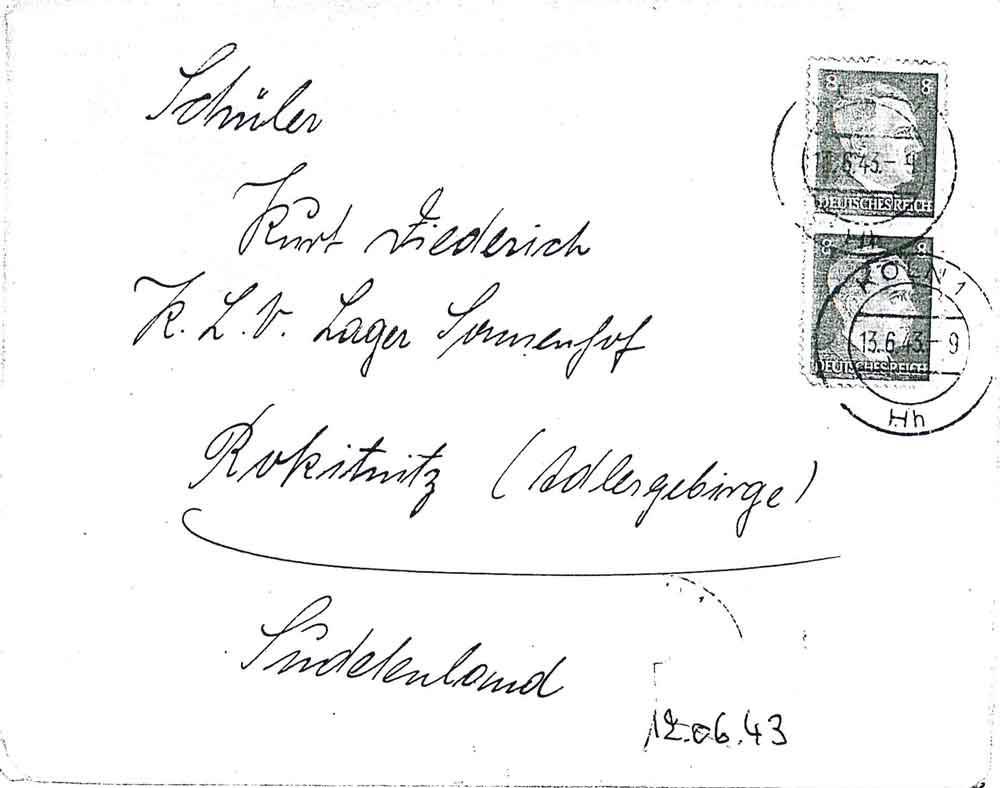 Schüler
Kurt Diederich
K. L. V. Lager Sonnenhof
Rokitnitz (Adlergebirge)
Sudetenland
12.06.43
8 8
DEUTSCHES REICH
6.43.-9
8 8
DEUTSCHES REICH
KÖLN 1
13.6.43.-9
Hh